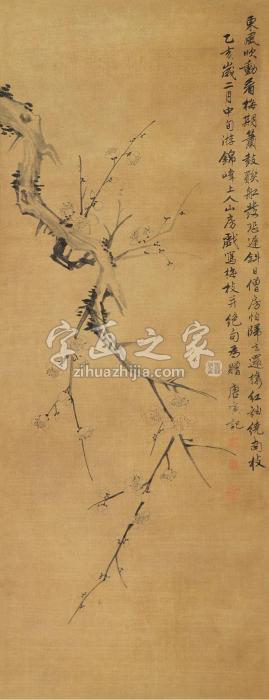 東風吹動看梅期簫鼓聯船發恐遲斜日僧房怕歸去還携紅袖繞南枝
乙亥歲二月中旬游錦峰上人山房戲寫梅枝并絕句為贈唐寅記
字画之家
zihuazhijia.com